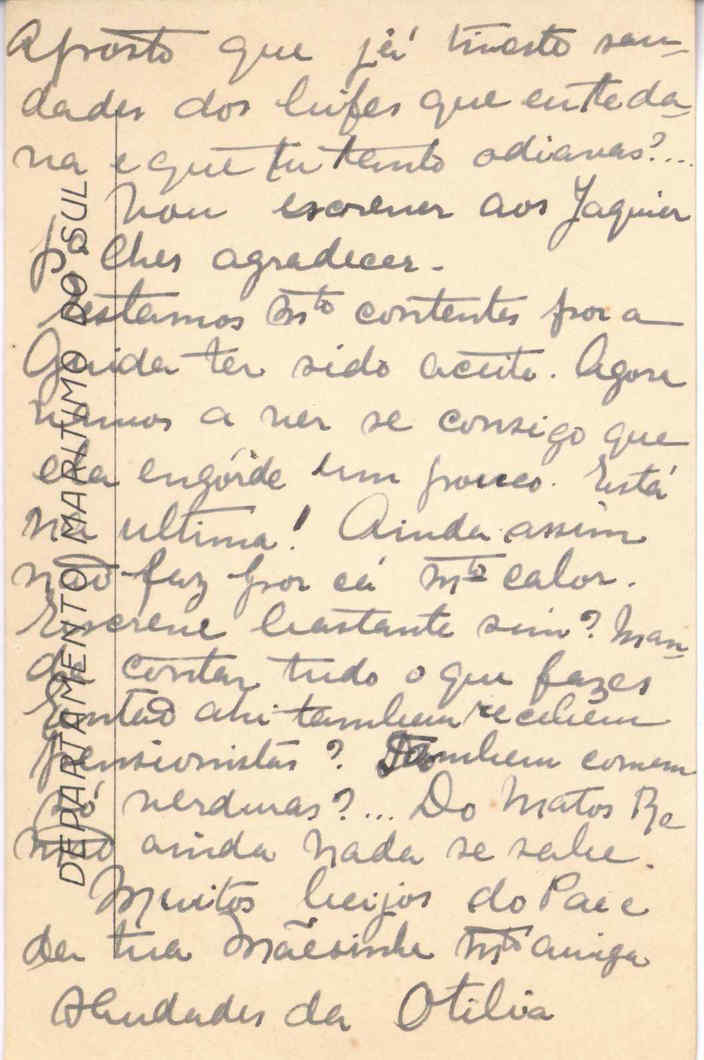 Aposto que já tiveste sau-
dades dos bifes que eu te da-
va e que tu tanto odiavas?...
Vou escrever aos Jaquier
pa lhes agradecer.
Estamos mto contentes por a
Guida ter sido aceite. Agora
vamos a ver se consigo que
ela engórde um pouco. Está
na ultima! Ainda assim
não faz por cá mto calor.
Escreve bastante sim? Man-
da contar tudo o que fazes
Então ahi tambem recebem
pensionistas? Tambem comem
só verduras?... Do Matos Be
não ainda nada se sabe.
Muitos beijos do Pae e
da tua Mãesinha mto amiga
Saudades da Otilia
DEPARTAMENTO MARITIMO DO SUL